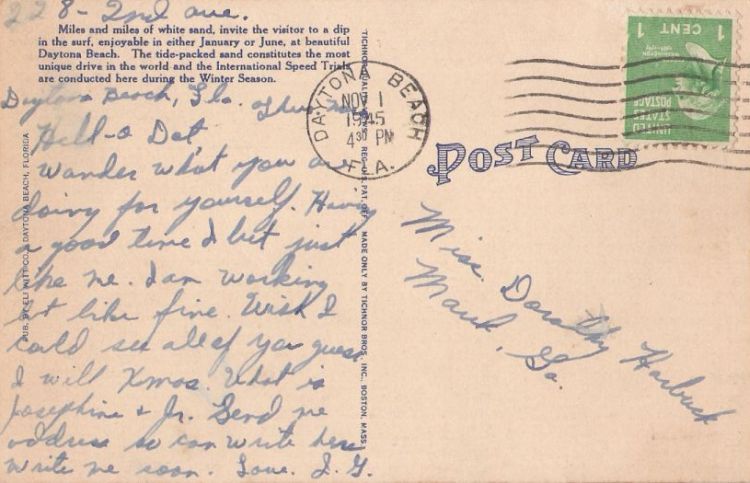 228 - 2nd Ave.
Miles and miles of white sand, invite the visitor to a dip
in the surf, enjoyable in either January or June, at beautiful
Daytona Beach. The tide-packed sand constitutes the most
unique drive in the world and the International Speed Trials
are conducted here during the Winter Season.
Daytona Beach, Fla.
Hell-o Dot,
Wander what you are
doing for yourself. Having
a good time I bet just
like me. I am working
bet like fine. Wish I
could see all of you guess
I will Xmas. What is
Josephine + Jr. Send me
address so can write here
write me soon. Love. J. G.
PUB. BY ELI WITT CO., DAYTONA BEACH, FLORIDA
TICHNOR QUALITY VIEWS, REG. U.S. PAT. OFF. MADE ONLY BY TICHNOR BROS. INC., BOSTON, MASS.
DAYTONA BEACH
NOV 1
1945
4 30 PM
FLA.
1 CENT 1
UNITED
STATES
POSTAGE
POST CARD
Miss. Dorothy Harbuck
Mauk,
Ga.